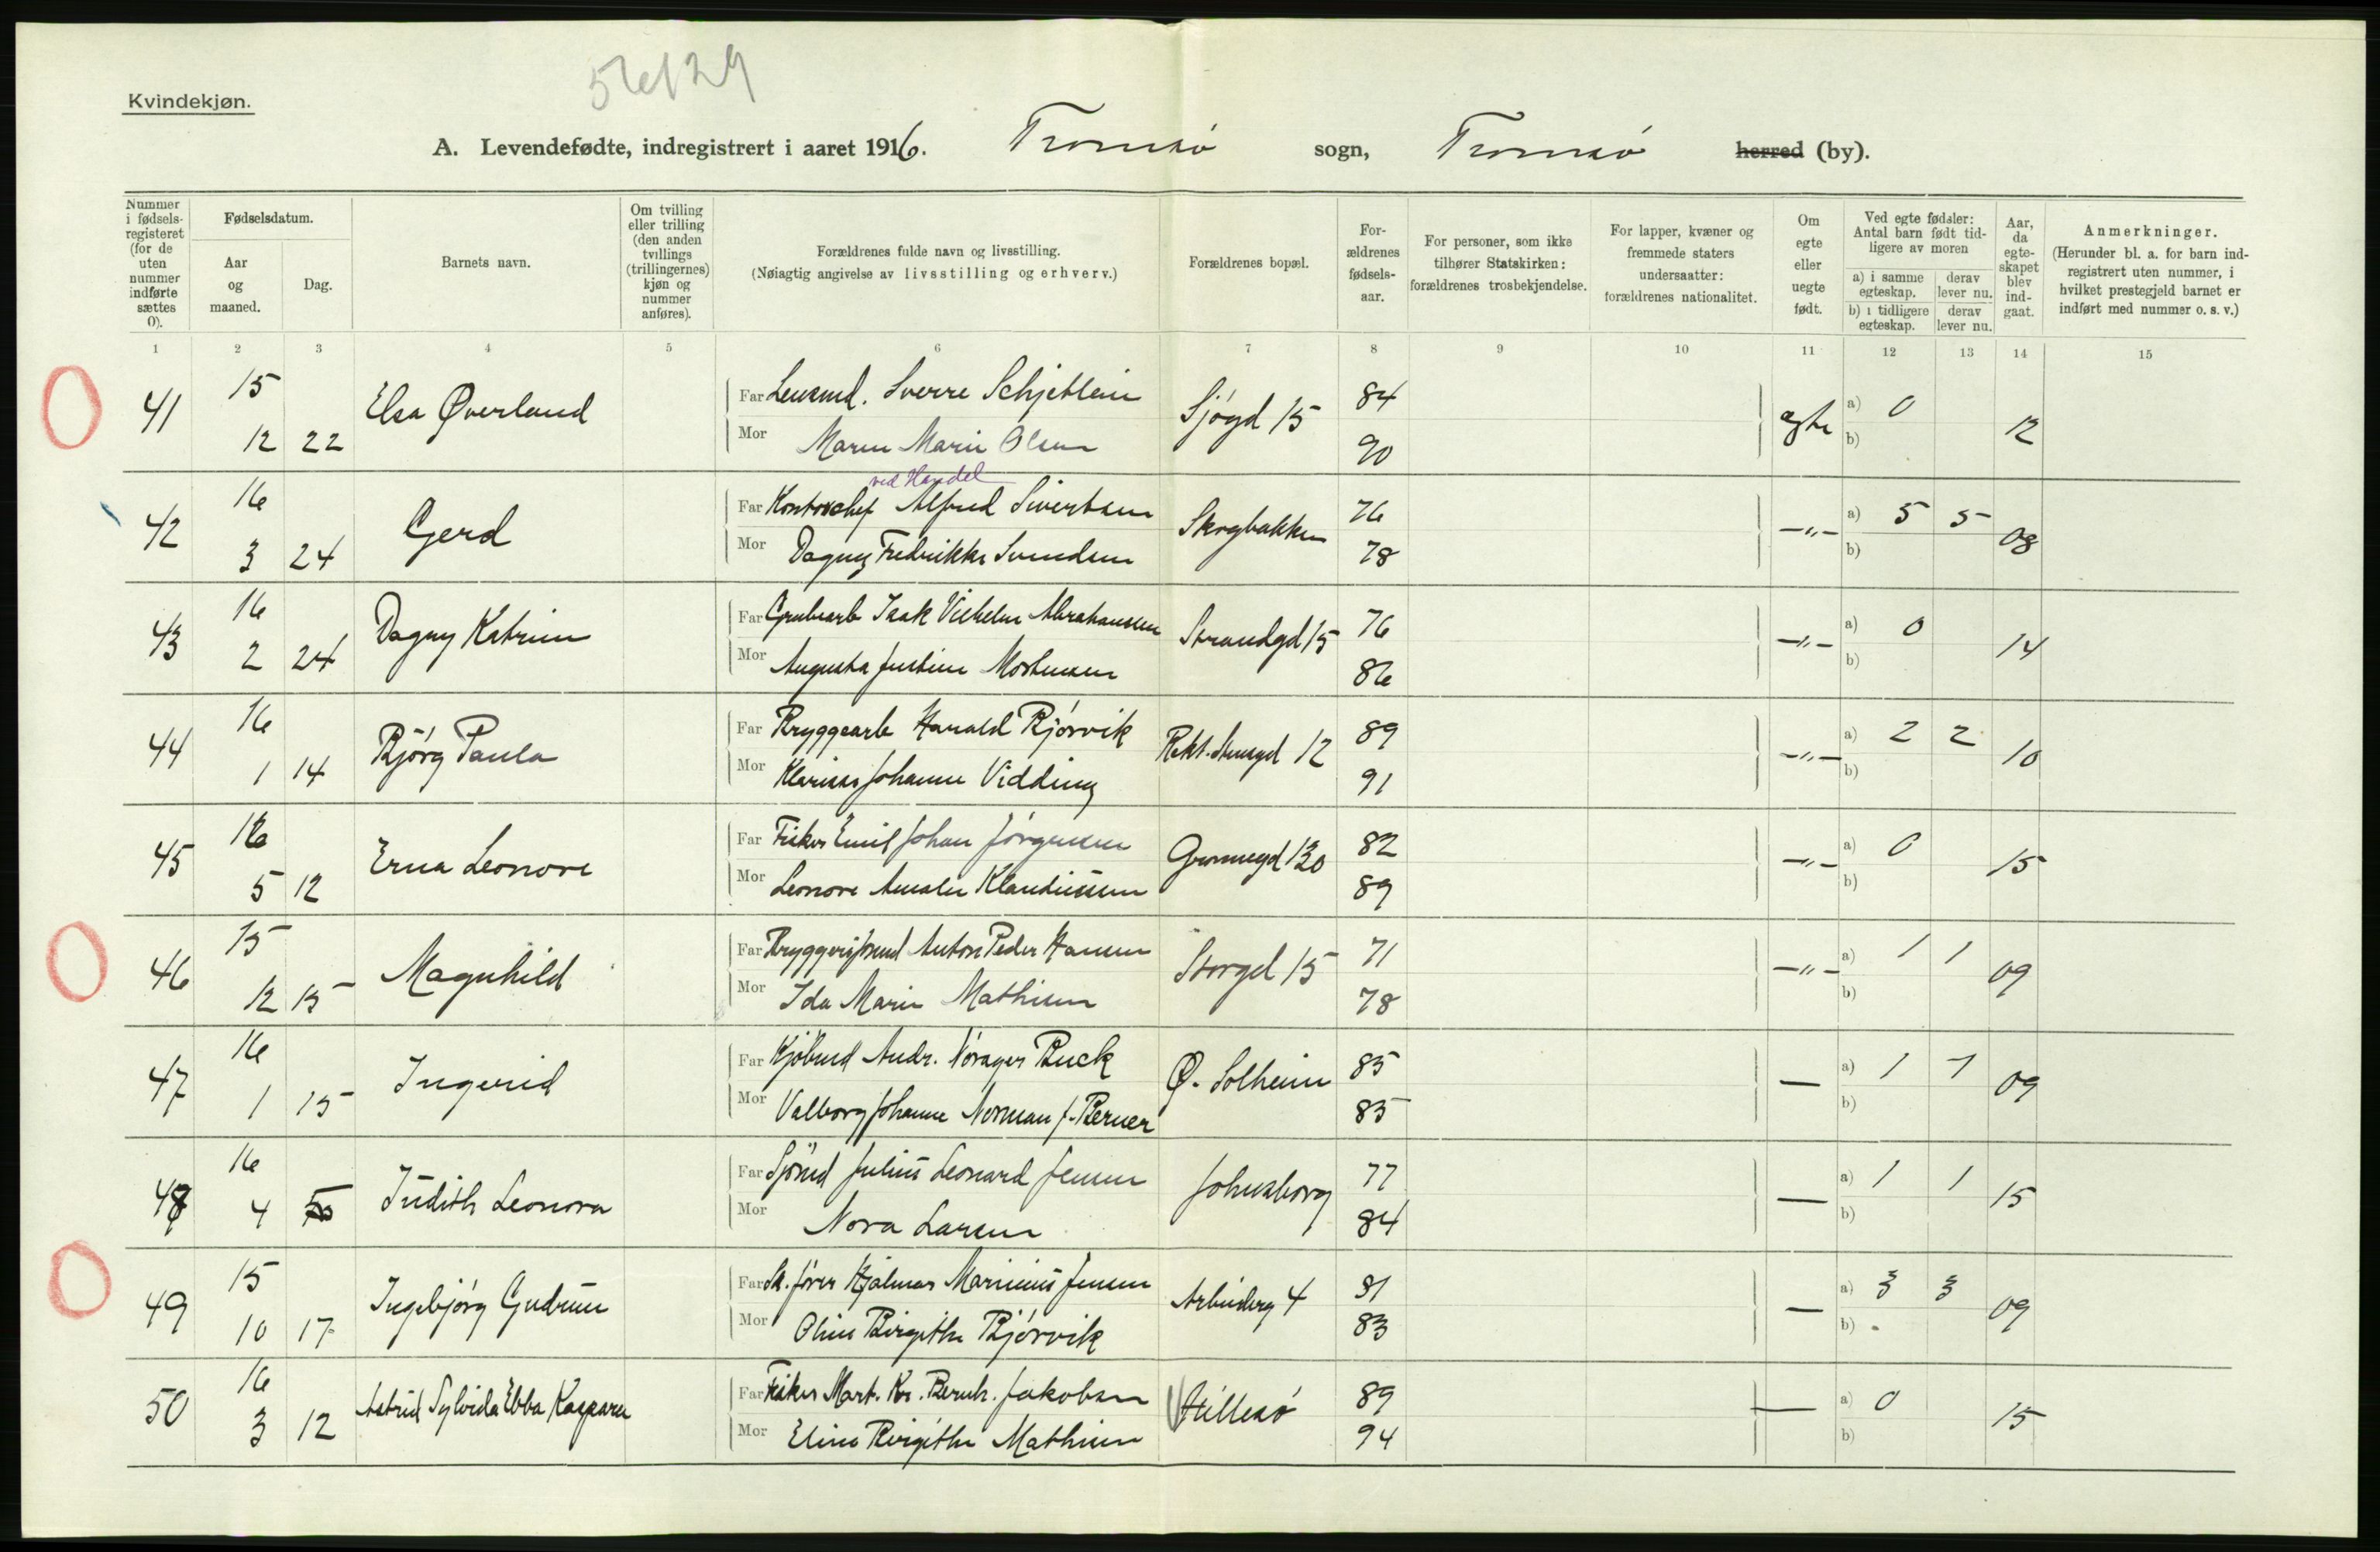 Kvindekjøn.
A. Levendefødte, indregistrert i aaret 1916. Tromsø sogn, Tromsø herred (by).
Nummer i fødsels-registeret (for de uten nummer indførte sættes 0).
Fødselsdatum.
Aar og maaned.
Dag.
Barnets navn.
Om tvilling eller trilling (den anden tvillings (trillingernes) kjøn og nummer anføres).
Forældrenes fulde navn og livsstilling.
(Nøiagtig angivelse av livsstilling og erhverv.)
Forældrenes bopæl.
For-ældrenes fødsels-aar.
For personer, som ikke tilhører Statskirken: forældrenes trosbekjendelse.
For lapper, kvæner og fremmede staters undersaatter: forældrenes nationalitet.
Om egte eller uegte født.
Ved egte fødsler: Antal barn født tid-ligere av moren
a) i samme egteskap.
derav lever nu.
b) i tidligere egteskap.
derav lever nu.
Aar, da egte-skapet blev ind-gaat.
Anmerkninger.
(Herunder bl. a. for barn ind-registrert uten nummer, i hvilket prestegjeld barnet er indført med nummer o. s. v.)
1 2 3 4 5 6 7 8 9 10 11 12 13 14 15
41 15 Elsa Øverland Far Sverre Schjetlein Sjøgd 15 84 egte a) 0 12
12 22 Mor Maren Marie Olsen 90 b)
ved Handel
42 16 Gerd Far Kontorchef Alfred Sivertsen Skogbakken 76 —"— a) 5 5 08
3 24 Mor Dagny Fredrikke Svendsen 78 b)
43 16 Dagny Katrine Far Grubearb Isak Vilhelm Abrahamsen Strandgd 15 76 —"— a) 0 14
2 24 Mor Augusta Justine Mortensen 86 b)
44 16 Bjørg Paula Far Bryggearb Harald Bjørvik 12 89 —"— a) 2 2 10
1 14 Mor Klarissa Johanne Vidding 91 b)
45 16 Erna Leonore Far Fisker Emil Johan Jørgensen Grønnegd 130 82 —"— a) 0 15
5 12 Mor Leonore Amalie Klaudiussen 89 b)
46 15 Magnhild Far Anton Peder Hansen Storgd 15 71 —"— a) 1 1 09
12 15 Mor Ida Marie Mathisen 78 b)
47 16 Ingerid Far Kjøbmd Andr. Nørager Buck Ø. Solheim 85 — a) 1 1 09
1 15 Mor Valborg Johanne Norman f. Berner 85 b)
48 16 Judith Leonora Far Sjømd Julius Leonard Jensen Johnsborg 77 — a) 1 1 15
4 Mor Nora Larsen 84 b)
49 15 Ingebjørg Gudrun Far Sk. fører Hjalmar Marinius Jensen 4 81 — a) 3 3 09
10 17 Mor Oline Birgithe Bjørvik 83 b)
50 16 Astrid Sylvida Ebba Kaspara Far Fisker Mart. Kr. Bernh. Jakobsen Hillesø 89 — a) 0 15
3 12 Mor Eline Birgithe Mathisen 94 b)